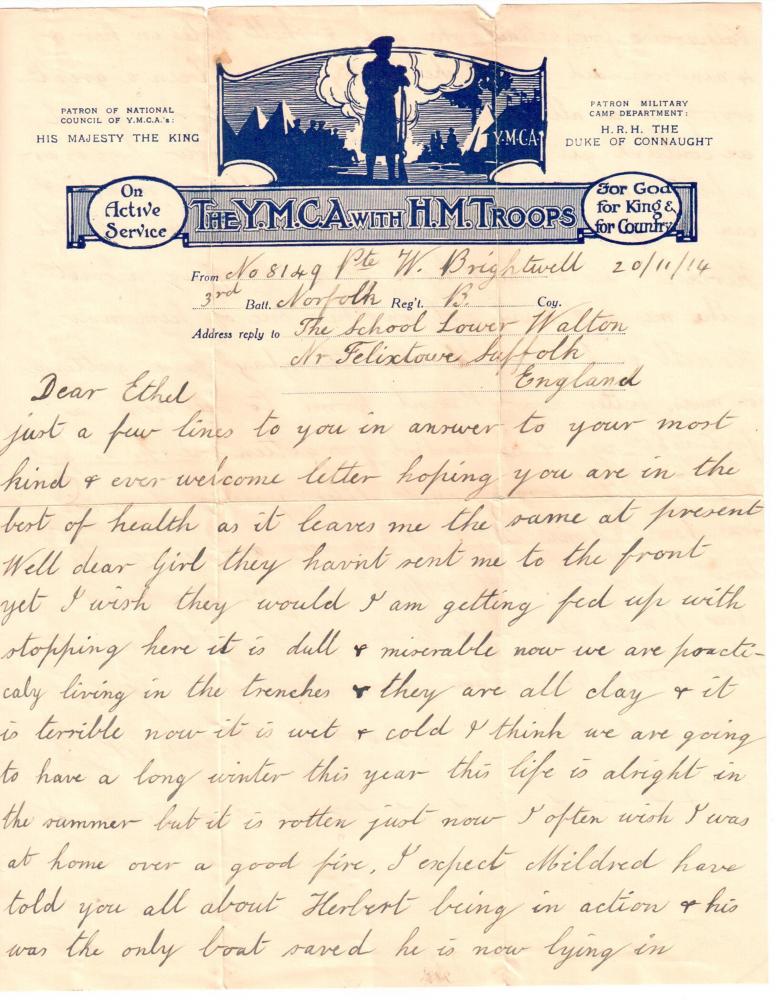 PATRON OF NATIONAL
COUNCIL OF Y.M.C.A.'s:
HIS MAJESTY THE KING
Y.M.C.A.
PATRON MILITARY
CAMP DEPARTMENT:
H.R.H. THE
DUKE OF CONNAUGHT
On
Active
Service
THE Y.M.C.A. WITH H.M. TROOPS
For God
for King &
for Country
From No 8149 Pte W. Brightwell 20/11/14
3rd Batt. Norfolk Reg't. B. Coy.
Address reply to The School Lower Walton
Nr Felixtowe Suffolk
England
Dear Ethel
just a few lines to you in answer to your most
kind & ever welcome letter hoping you are in the
best of health as it leaves me the same at present
Well dear Girl they hav'nt sent me to the front
yet I wish they would I am getting fed up with
stopping here it is dull & miserable now we are practi-
caly living in the trenches & they are all clay & it
is terrible now it is wet & cold I think we are going
to have a long winter this year this life is alright in
the summer but it is rotten just now I often wish I was
at home over a good fire, I expect Mildred have
told you all about Herbert being in action & his
was the only boat saved he is now lying in